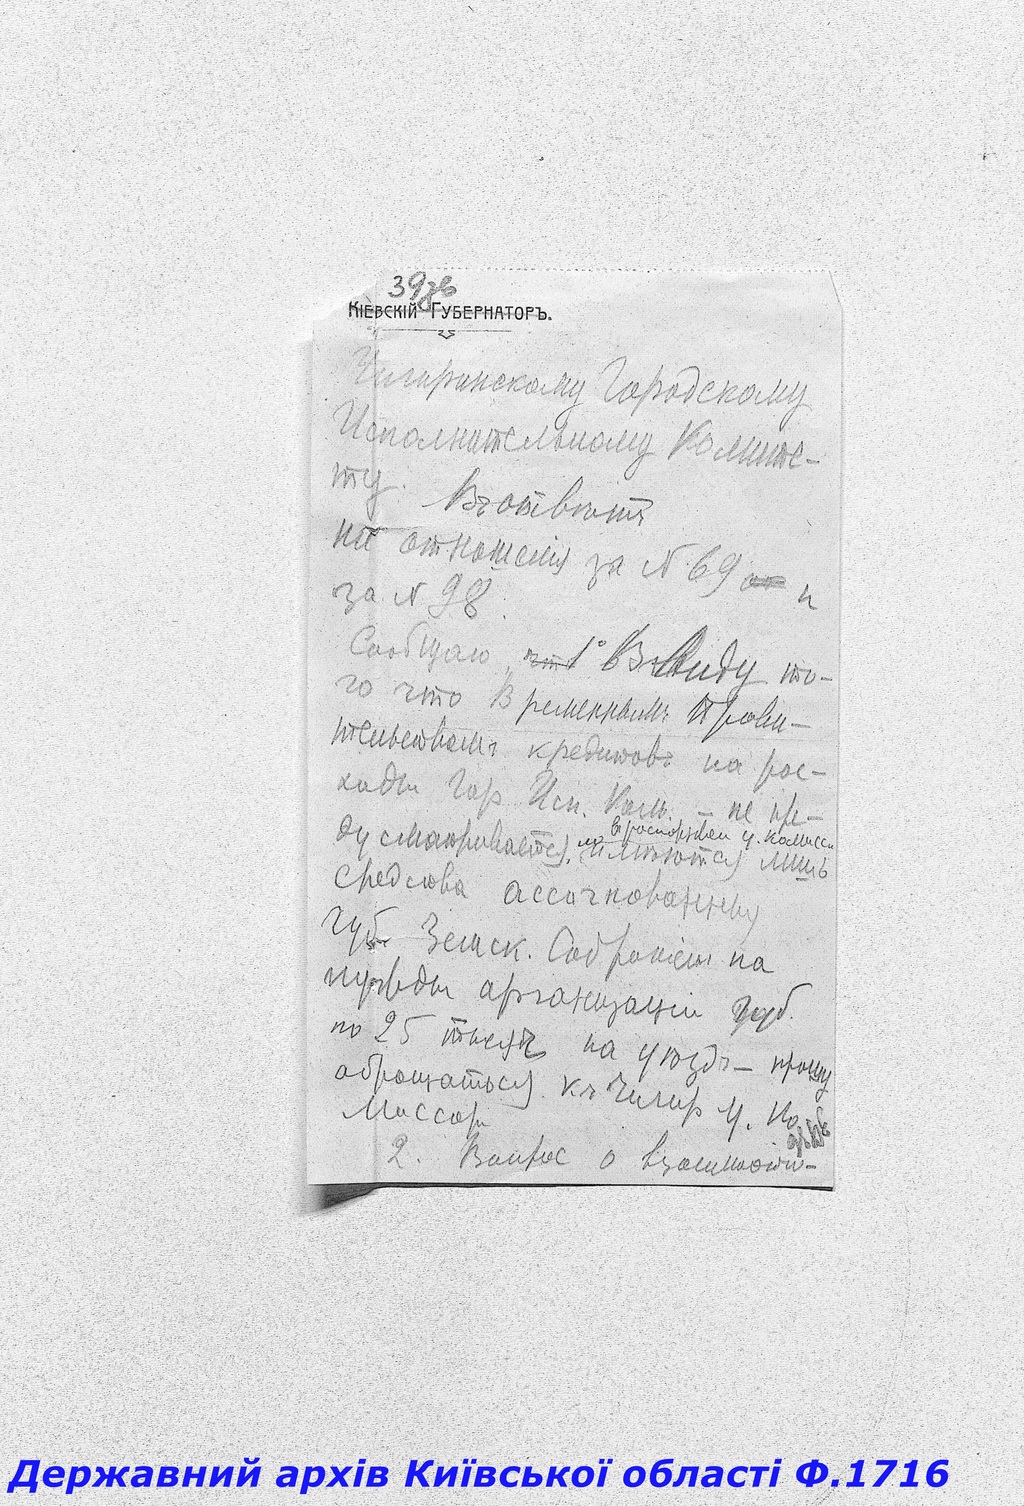 39зв
КІЕВСКІЙ ГУБЕРНАТОРЪ.
Чигиринскому Городскому
Исполнительному Комите-
ту. Въ отвѣтъ
на отношенія за N 69 и
за N 98.
Сообщаю, что 1° Въ виду то-
го что Временнымъ Прави-
тельствомъ кредитовъ на рас-
ходы Гор Исп. Ком. – не пре-
въ распоряжен у. комисса
дусматривается, но имѣются лишь
средства ассигнованныя
Губ Земск. Собраніемъ на
нужды организаціи
по 25 тысячъ на уѣздъ – прошу
обращаться къ Чигир у. Ко
миссару
2. Вопрос о взаимоотн-
Державний архів Київської області Ф.1716